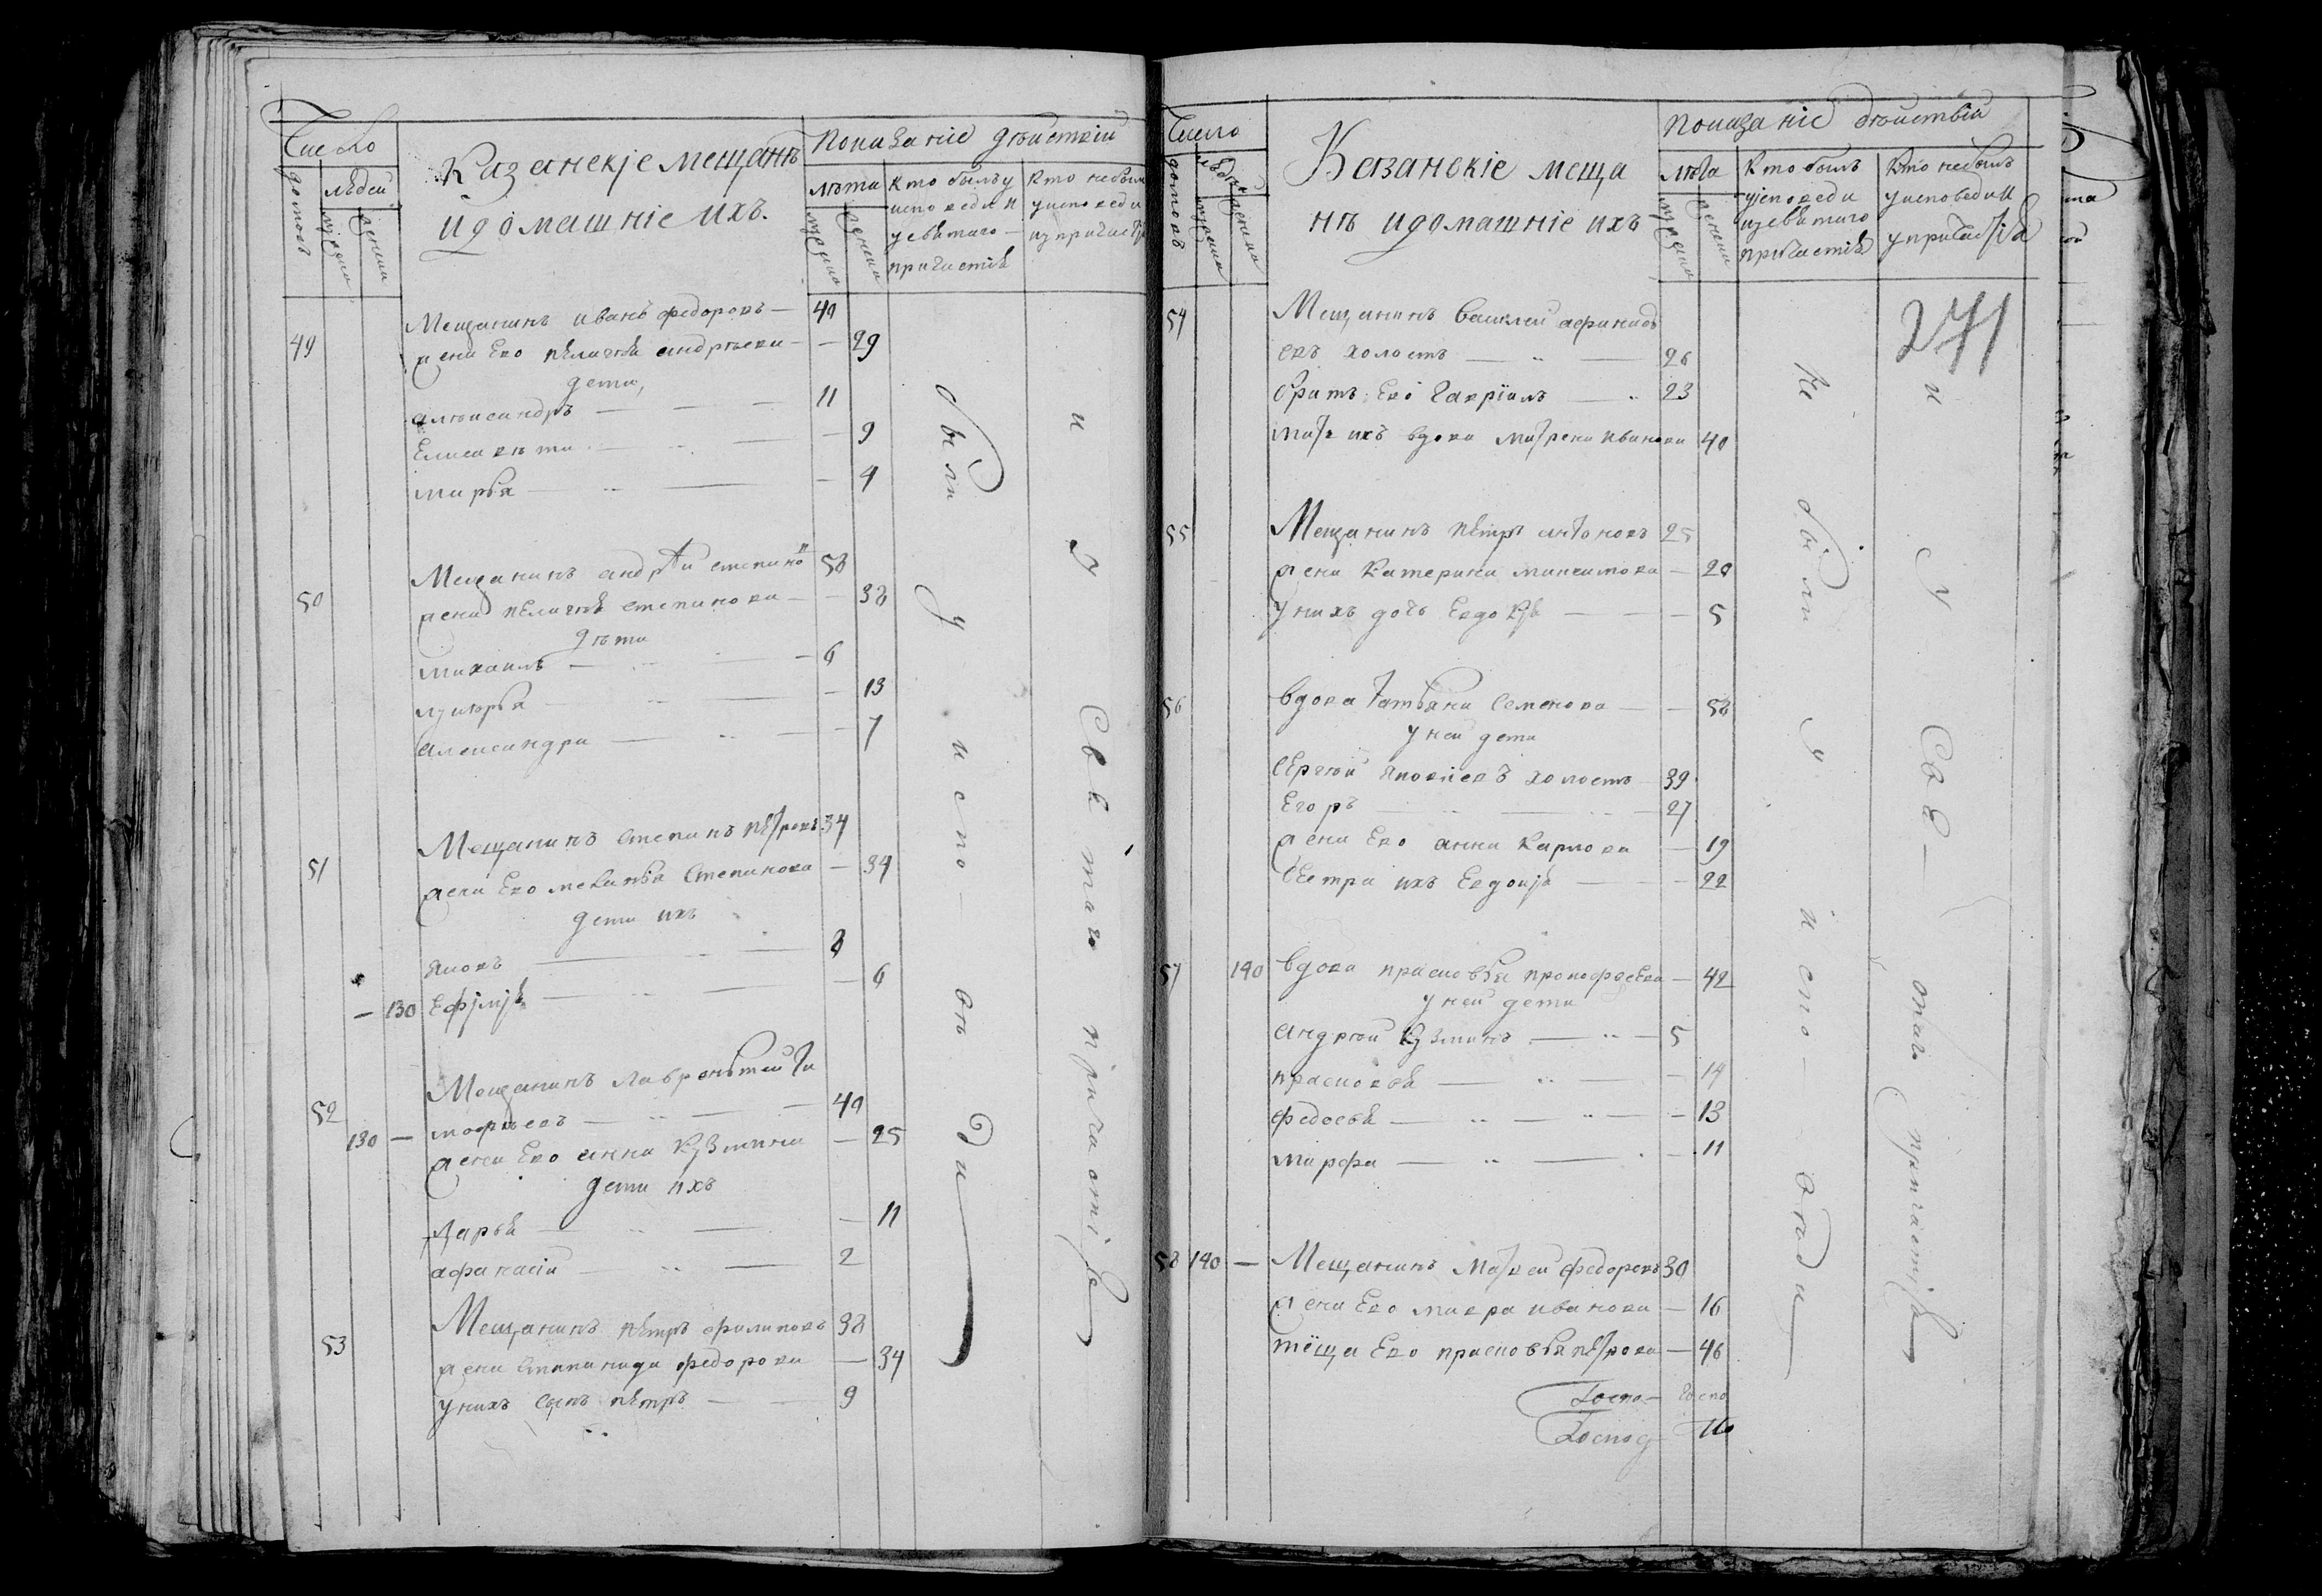 Число
домовъ
людей
мужеска
женска
Казанскје мещанѣ
и домашніе ихъ.
Показаніе дѣйствій
лѣта
мужеска
женска
Кто былъ у
исповеди и
у святаго
причастія
Кто небылъ
у исповеди
и у причастія
49 Мещанинъ иванъ федоровъ — 40
жена Ево пелагѣя андрѣева — 29
дети,
алѣксандръ — 11
Елисавѣта — 9
марья — 4
50 Мещанинъ андрѣи степано 58
жена пелагѣя степанова — 38
дѣти
михаилъ — 6
лукѣрья — 13
александра — 7
51 Мещанинъ степанъ петровъ 34
жена Ево меланья степанова — 34
дети ихъ
яковъ — 8
— 130 Ефјмја — 6
52 Мещанинъ лаврентеи ти
130 — мофѣевъ — 40
жена Ево анна Кузмина — 25
дети ихъ
дарья — 11
афанасіи — 2
53 Мещанинъ петръ филиповъ 38
жена степанида федорова — 34
у нихъ сынъ петръ — 9
были у испо— вѣди
и у Святаго причастја
Число
домовъ
людей
мужеска
женска
Казанскіе меща
нѣ и домашніе ихъ
Показаніе дѣйствій
лѣта
мужеска
женска
Кто былъ
у јсповеди
и у святаго
причастія
Кто небылъ
у исповеди и
у причастіа
271
54 Мещанинъ василеи афанась
евъ холостъ — 26
братъ Евò гавріилъ — 23
мать ихъ вдова матрена иванова 40
55 Мещанинъ петръ антоновъ 25
жена Катерина максимова — 20
у нихъ дочь Евдокја — 5
56 вдова татьяна семенова — 58
у неи дети
сергѣи яковлевъ холостъ — 39
Егоръ — 27
жена Ево анна Карпова — 19
сестра ихъ Евдокја — 22
57 140 вдова прасковья прокофьева — 42
у неи дети
андрѣи Кузминъ — 5
прасковья — 14
федосья — 13
марфа — 11
58 140 — Мещанинъ матвеи федоровъ 30
жена Ево мавра иванова — 16
тёща Ево прасковья петрова — 46
Госпо— госпо
Господ
не были у испо— вѣди
и у Свя— таго причастја